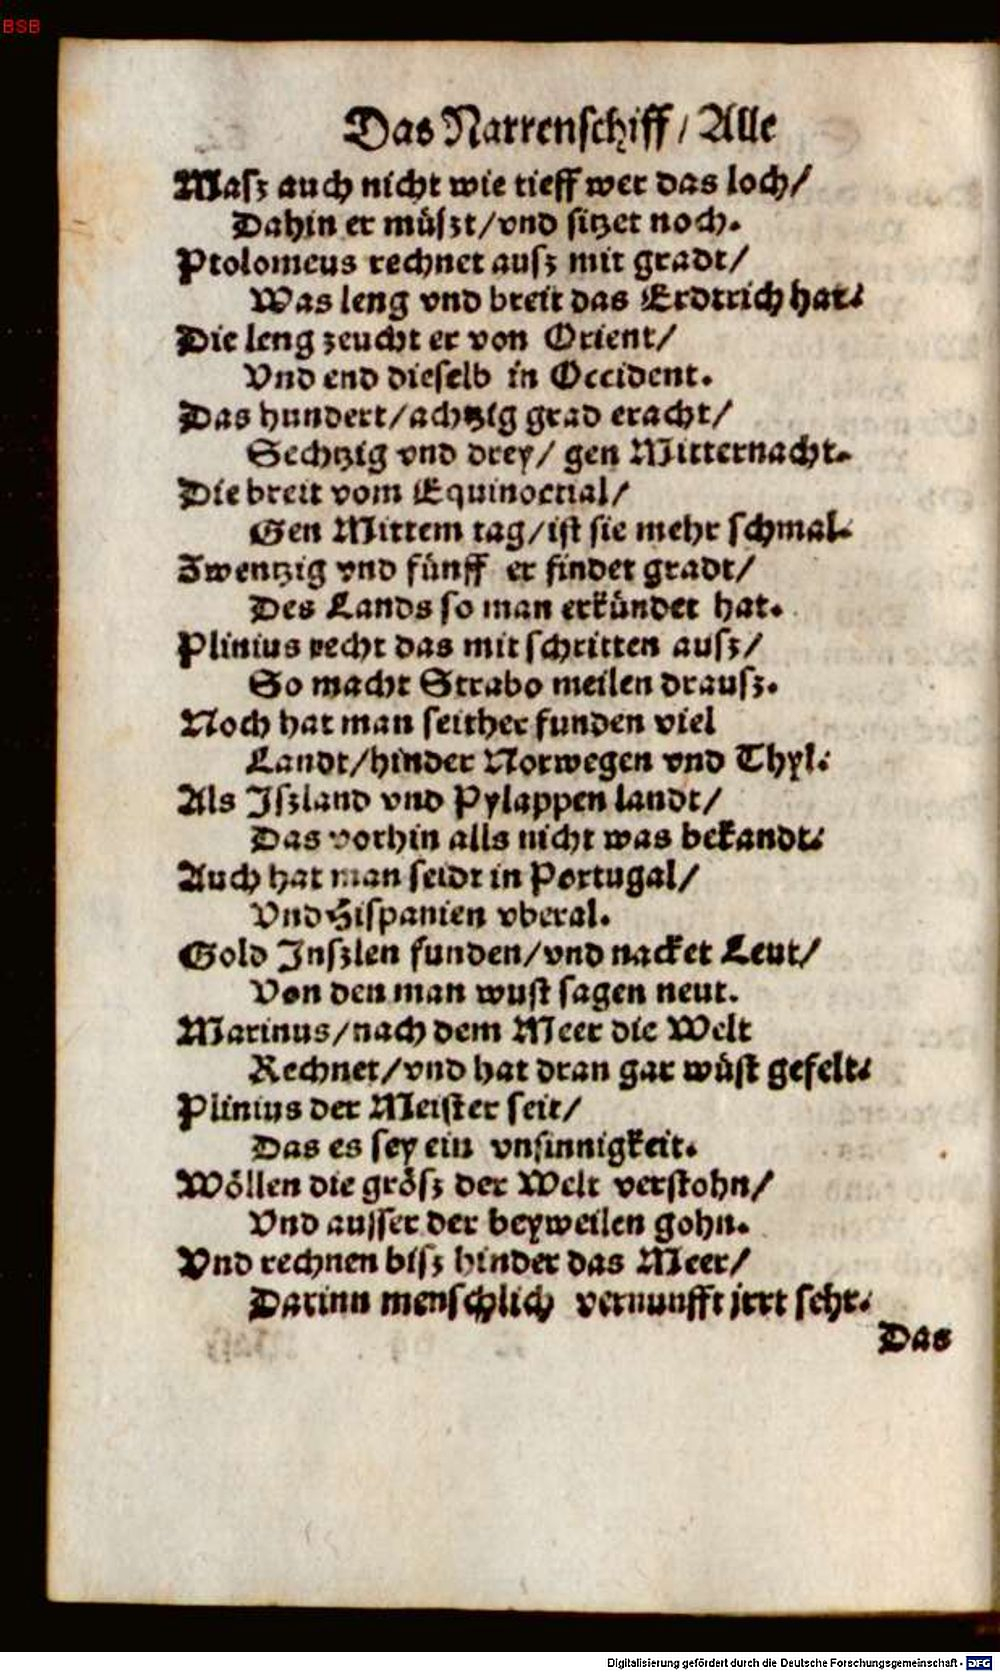 BSB
Das Narrenschiff / Alle
Masz auch nicht wie tieff wer das loch /
Dahin er müszt / vnd sitzet noch.
Ptolomeus rechnet ausz mit gradt /
Was leng vnd breit das Erdtrich hat.
Die leng zeucht er von Orient /
Vnd end dieselb in Occident.
Das hundert / achtzig grad eracht /
Sechtzig vnd drey / gen Mitternacht.
Die breit vom Equinoctial /
Gen Mittem tag / ist sie mehr schmal.
Zwentzig vnd fünff er findet gradt /
Des Lands so man erkündet hat.
Plinius recht das mit schritten ausz /
So macht Strabo meilen drausz.
Noch hat man seither funden viel
Landt / hinder Norwegen vnd Thyl.
Als Jszland vnd Pylappen landt /
Das vorhin alls nicht was bekandt.
Auch hat man seidt in Portugal /
Vnd Hispanien vberal.
Gold Jnszlen funden / vnd nacket Leut /
Von den man wust sagen neut.
Marinus / nach dem Meer die Welt
Rechnet / vnd hat dran gar wüst gefelt.
Plinius der Meister seit /
Das es sey ein vnsinnigkeit.
Wöllen die grösz der Welt verstohn /
Vnd ausser der beyweilen gohn.
Vnd rechnen bisz hinder das Meer /
Darinn menschlich vernunfft jrrt sehr.
Das
Digitalisierung gefördert durch die Deutsche Forschungsgemeinschaft - DFG